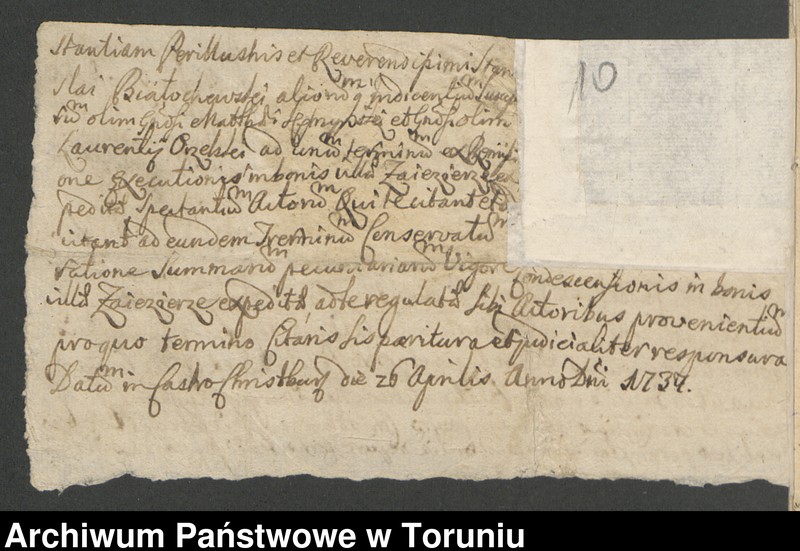 stantiam Perillustris et Reverendissimi Stani
slai Białochowski aliorumq indicentium succes
sorum olim Gnosi Matthaei Legnypski et Gnosi olim
Laurentij Orzelski ad unum terminum ex Remissi
one Executionis in bonis villae Zaiezierze ex
peditae spectantium Actorum Qui Te citant et
citant ad eundem Terminum Conservatum
ratione Summarum pecuniariarum Vigore Condescensionis in bonis
villae Zaiezierze expeditae, ad te regulatae sibi Actoribus provenientium
pro quo termino Citaris sis paritura et judicialiter responsura
Datum in Castro Christburg die 26 Aprilis Anno Dni 1737.
10
Archiwum Państwowe w Toruniu